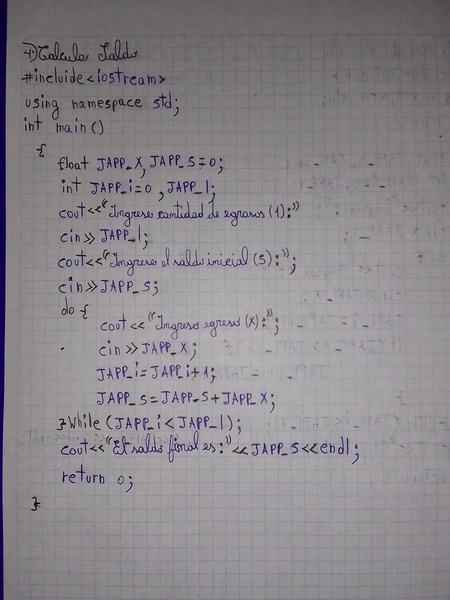 1) Calcular Saldo
#incluide<iostream>
using namespace std;
int main()
{
float JAPP_X, JAPP_S=0;
int JAPP_i=0, JAPP_1;
cout<<"Ingrese cantidad de egresos (1):"
cin>> JAPP_1;
cout<<"Ingrese el saldo inicial (S):";
cin>>JAPP_S;
do {
cout<<"Ingreso egreso (X):";
cin>>JAPP_X;
JAPP_i=JAPP_i+1;
JAPP_S=JAPP_S+JAPP_X;
}While (JAPP_i<JAPP_1);
cout<<"El saldo final es:"<<JAPP_S<<endl;
return 0;
}